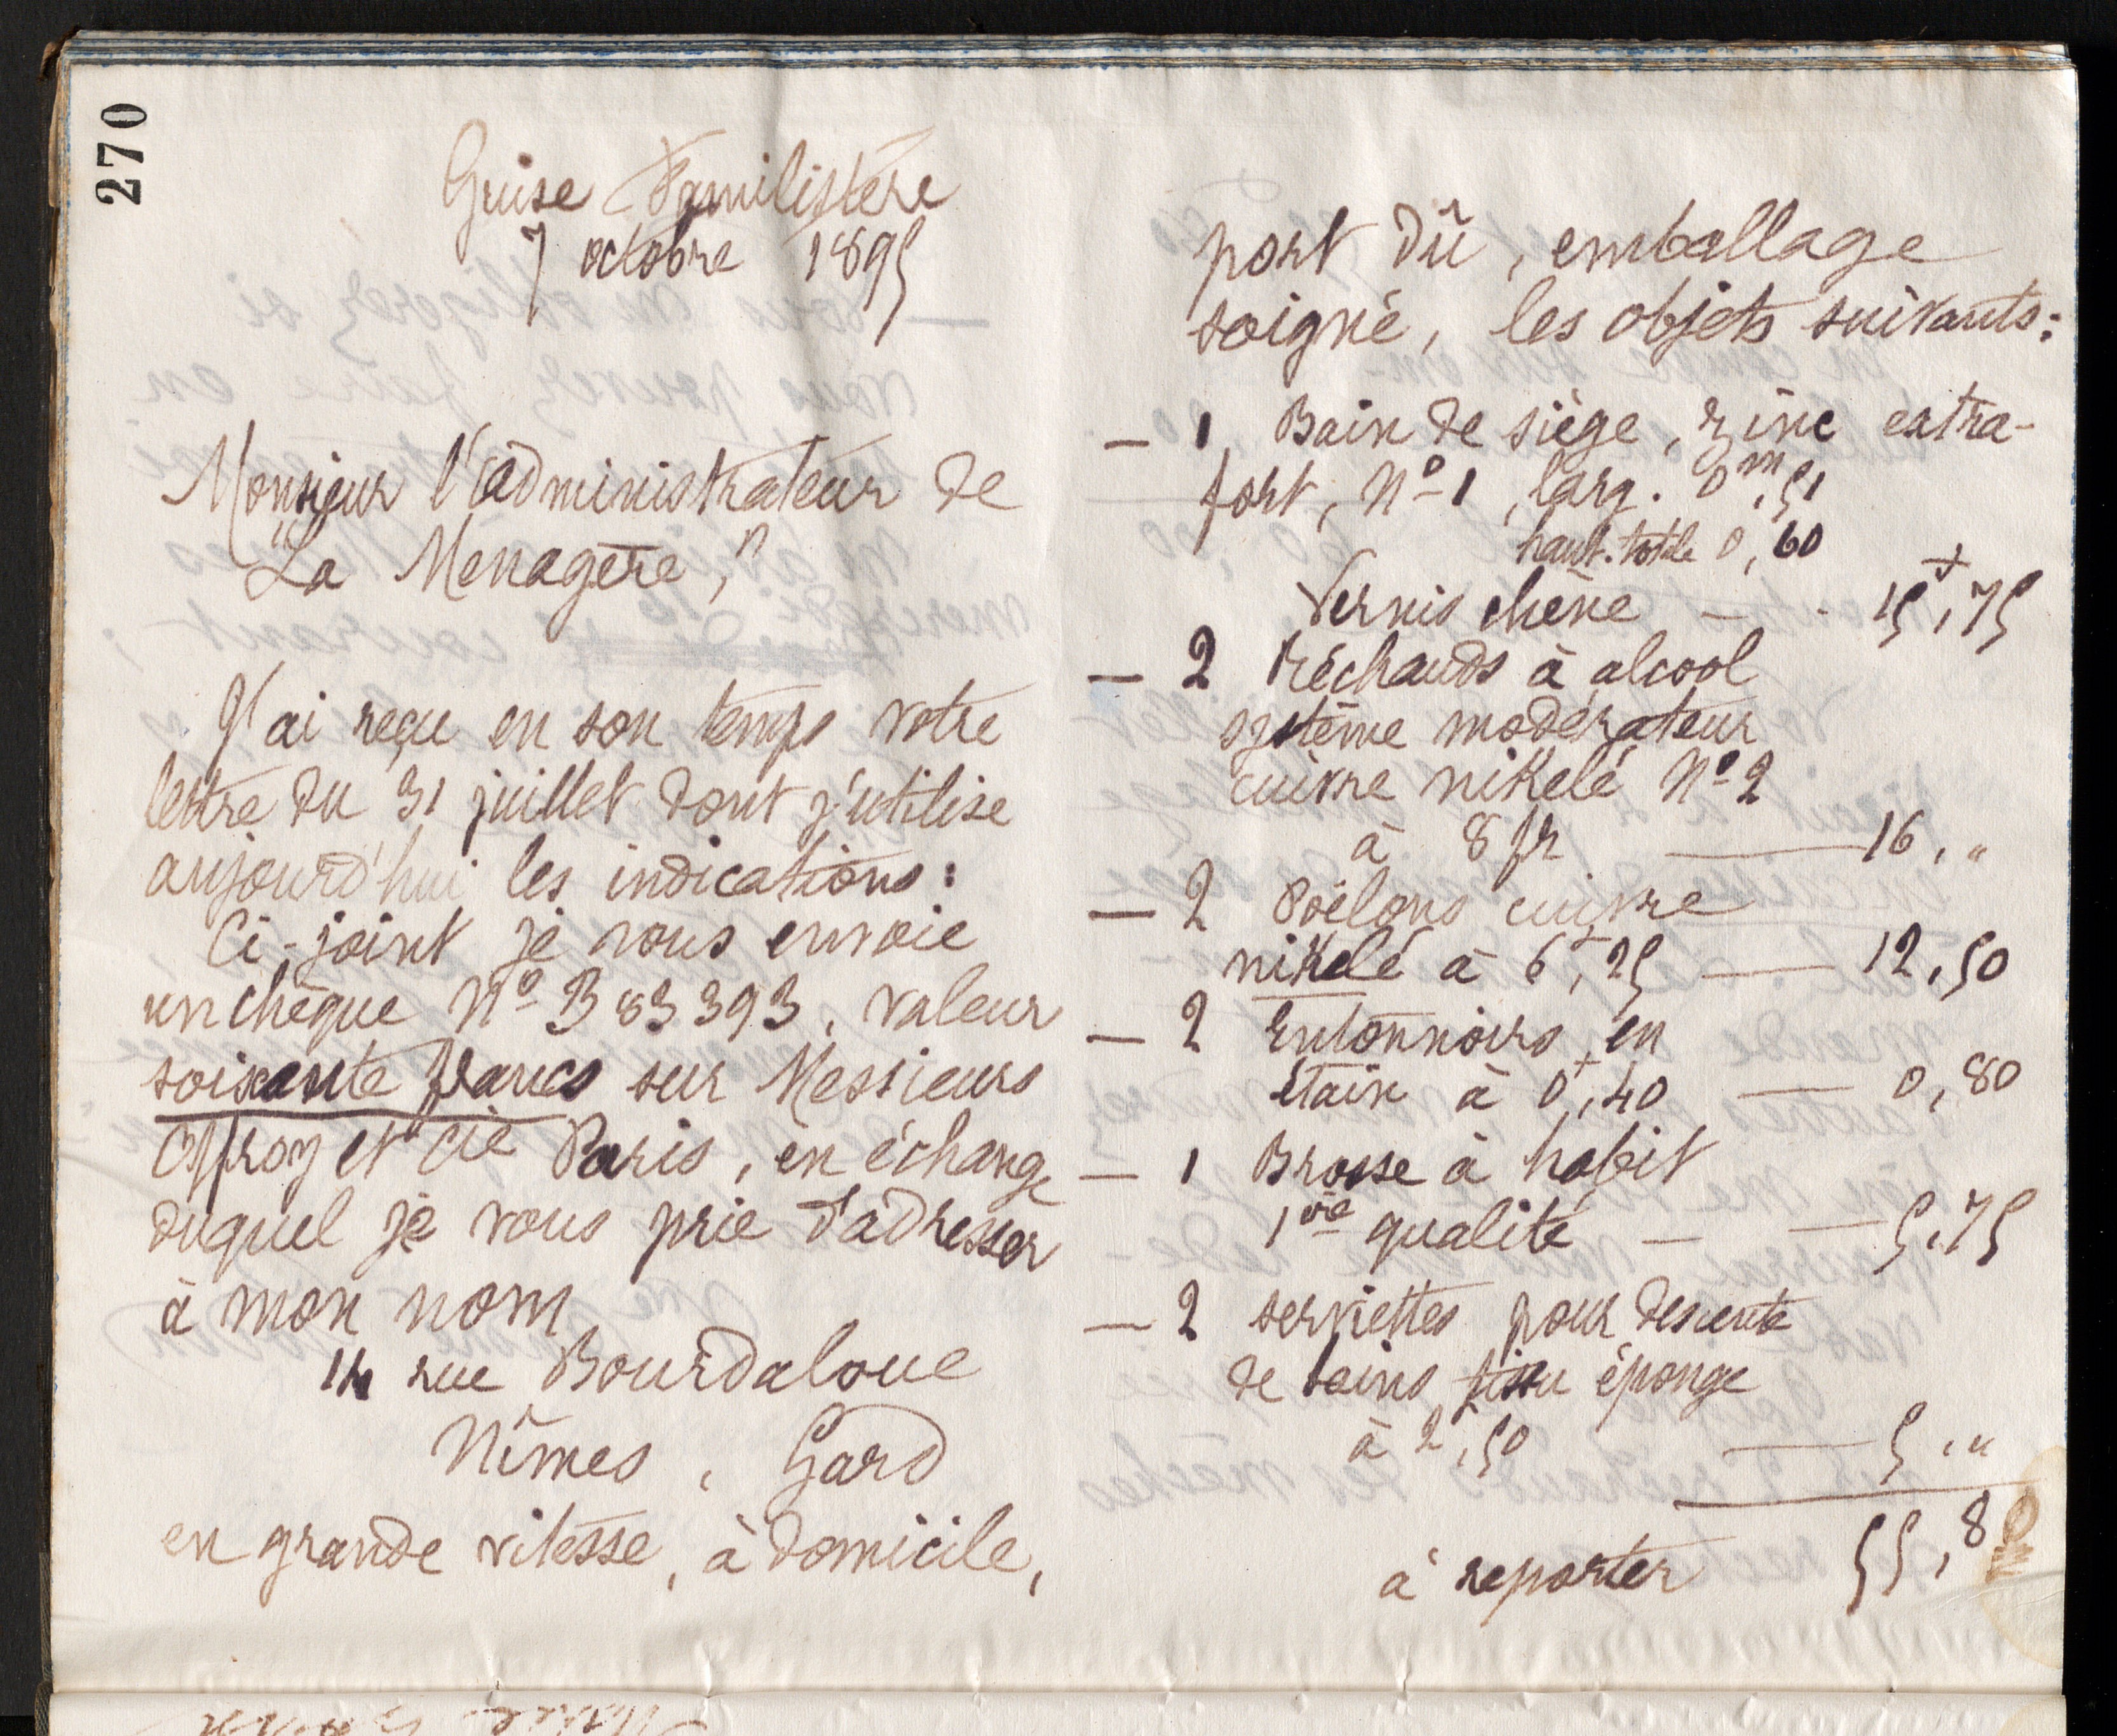 270
Guise Familistère
7 octobre 1895
Monsieur l'administrateur de
"La Menagère,"
J'ai reçu en son temps votre
lettre du 31 juillet dont j'utilise
aujourd'hui les indications:
Ci-joint je vous envoie
un chèque No B 83393, valeur
soixante francs sur Messieurs
Offroy et Cie Paris, en échange
duquel je vous prie d'adresser
à mon nom
14 rue Bourdaloue
Nîmes, Gard
en grande vitesse, à domicile,
port dû, emballage
soigné, les objets suivants:
— 1 Bain de siège, zinc extra-
fort, No 1, larg. 0m,51
haut. totale 0,60
Vernis chêne — - 15f,75
— 2 Réchauds à alcool
système modérateur
cuivre nikelé No 2
à 8 fr — 16,"
— 2 Poêlons cuivre
nikelé à 6f,25 — 12,50
— 2 Entonnoirs en
étain à 0f,40 — 0,80
— 1 Brosse à habit
1ère qualité — — 5,75
— 2 serviettes pour descente
de bains tissu éponge
à 2f,50 — 5,"
à reporter 55,80